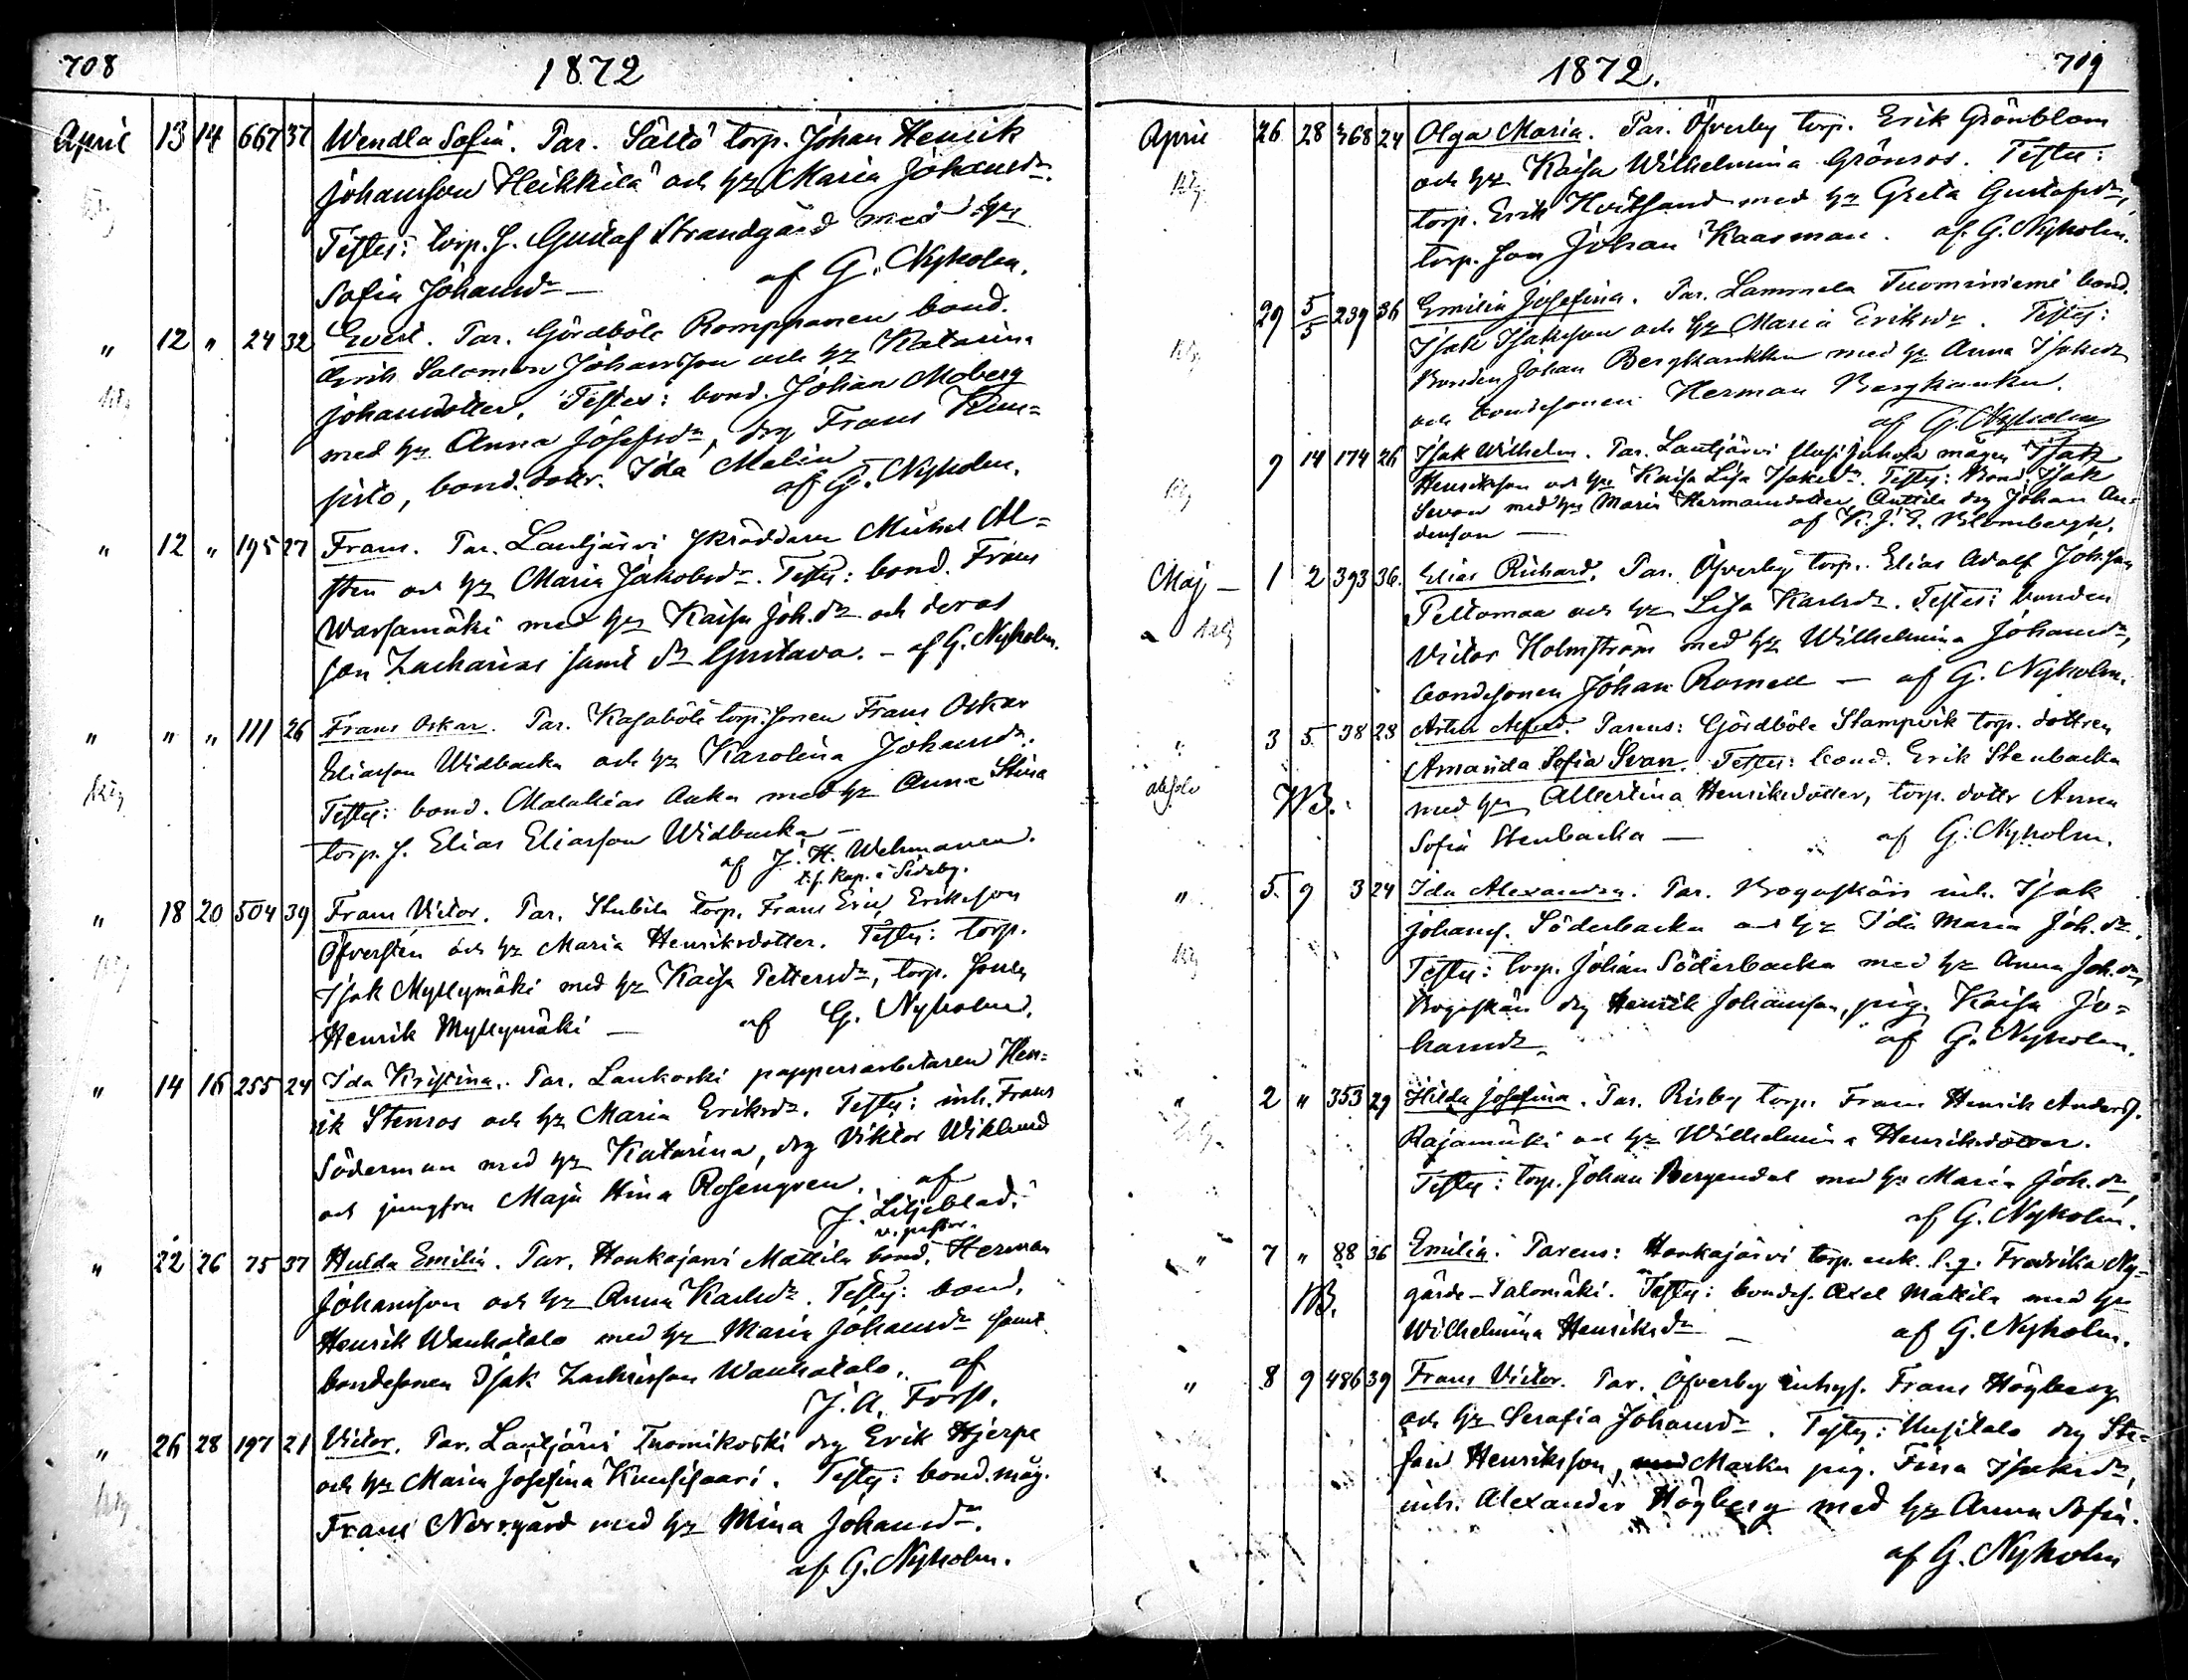 708
1872
April 13 14 667 37 Wendla Sofia. Par. Sältö torp. Johan Henrik
Johansson Heikkilä och hu Maria Johansdr.
Testes: torp. s. Gustaf Strandgård med hu
Sofia Johansdr — af G. Nyholm.
" 12 " 24 32 Evert. Par. Gördböle Romppanen bond.
Erik Salomon Johansson och hu Katarina
Johansdotter. Testes: bond. Johan Moberg
med hu Anna Josefsdr, drg Frans
bond. dottr. Ida Malin
af G. Nyholm.
" 12 " 195 27 Frans. Par. Lautjärvi skräddaren Mickel Al=
sten och hu Maria Jakobsdr. Testes: bond. Frans
Warsamäki med hu Kaisa Joh.dr och deras
son Zacharias samt dr Gustava. — af G. Nyholm.
" " " 111 26 Frans Oskar. Par. Kasaböle torp.sonen Frans Oskar
Eliasson Widbacka och hu Karolina Johansdr.
Testes: bond. Malakias Aaka med hu Anna Stina
torp. s. Elias Eliasson Widbacka —
af J. H. Wehmanen.
t.f. Kap. i Sideby.
" 18 20 504 39 Frans Victor. Par. Stubila torp. Frans Eric Eriksson
Öfversten och hu Maria Henriksdotter. Testes: torp.
Isak Myllymäki med hu Kaisa Pettersdr, torp. sonen
Henrik Myllymäki — af G. Nyholm.
" 14 16 255 24 Ida Kristina. Par. Lankoski pappersarbetaren Hen=
rik Stenros och hu Maria Eriksdr. Testes: inh. Frans
Söderman med hu Katarina, drg Viktor Wiklund
och jungfru Maja Stina Rosengren. af
J. Liljeblad.
v. pastor.
" 22 26 75 37 Hulda Emilia. Par. Honkajärvi Mattila bond. Herman
Johansson och hu Anna Karlsdr. Testes: bond.
Henrik Wanhatalo med hu Maria Johansdr samt
bondesonen Isak Zachrisson Wanhatalo. af
J. A. Forss.
" 26 28 197 21 Victor. Par. Lautjärvi Tuomikoski drg Erik Hjerpe
och hu Maria Josefina Kuusisaari. Testes: bond. måg.
Frans Norrgård med hu Mina Johansdr.
af G. Nyholm.
1872.
709
April 26 28 368 24 Olga Maria. Par. Öfverby torp. Erik Grönblom
och hu Kaisa Wilhelmina Grönros. Testes:
torp. Erik Hvitsand med hu Greta Gustafsdr,
torp. son Johan Kaasman. af G. Nyholm.
29 5/5 239 36 Emilia Josefina. Par. Lammela Tuominiemi bond.
Isak Isaksson och hu Maria Eriksdr. Testes:
Bonden Johan Bergkankku med hu Anna Isaksdr
och bondesonen Herman Bergkankku.
af G. Nyholm
9 14 174 26 Isak Wilhelm. Par. Lautjärvi mågen Isak
Henriksson och hu Kaisa Lisa Isaksdr. Testes: Bond. Isak
med hu Maria Hermansdotter, Anttila drg Johan An=
dersson — af K. J. G. Blombergh.
Maj — 1 2 393 36. Elias Richard. Par. Öfverby torp. Elias Adolf Joh.son
Peltomaa och hu Lisa Karlsdr. Testes: bonden
Victor Holmström med hu Wilhelmina Johansdr,
bondesonen Johan Rosnell — af G. Nyholm.
" 3 5 38 23 Artur Alfred. Parens: Gördböle Stampvik torp. dottren
Amanda Sofia Svan. Testes: bond. Erik Stenbacka
absolv NB. med hu Albertina Henriksdotter, torp. dottr Anna
Sofia Stenbacka — af G. Nyholm.
" 5 9 3 24 Ida Alexandra. Par. Rogoskärs inh. Isak
Johanss. Söderbacka och hu Ida Maria Joh.dr.
Testes: torp. Johan Söderbacka med hu Anna Joh.dr,
Rogoskärs drg Henrik Johansson, pig. Kaisa Jo=
hansdr. af G. Nyholm.
" 2 " 353 29 Hilda Josefina. Par. Risby torp. Frans Henrik Anderss.
Rajamäki och hu Wilhelmina Henriksdotter.
Testes: torp. Johan Bergendal med hu Maria Joh.dr,
af G. Nyholm.
" 7 " 88 36 Emilia. Parens: Honkajärvi torp. enk. l.q. Fredrika Ny=
gårds-Salomäki. Testes: bondes. Axel Mattila med hu
NB. Wilhelmina Henriksdr — af G. Nyholm.
" 8 9 486 39 Frans Victor. Par. Öfverby inhys. Frans Högberg
och hu Serafia Johansdr. Testes: Uusitalo drg Ste=
fan Henriksson, Markku pig. Fina Isaksdr,
inh. Alexander Högberg med hu Anna Sofia.
af G. Nyholm